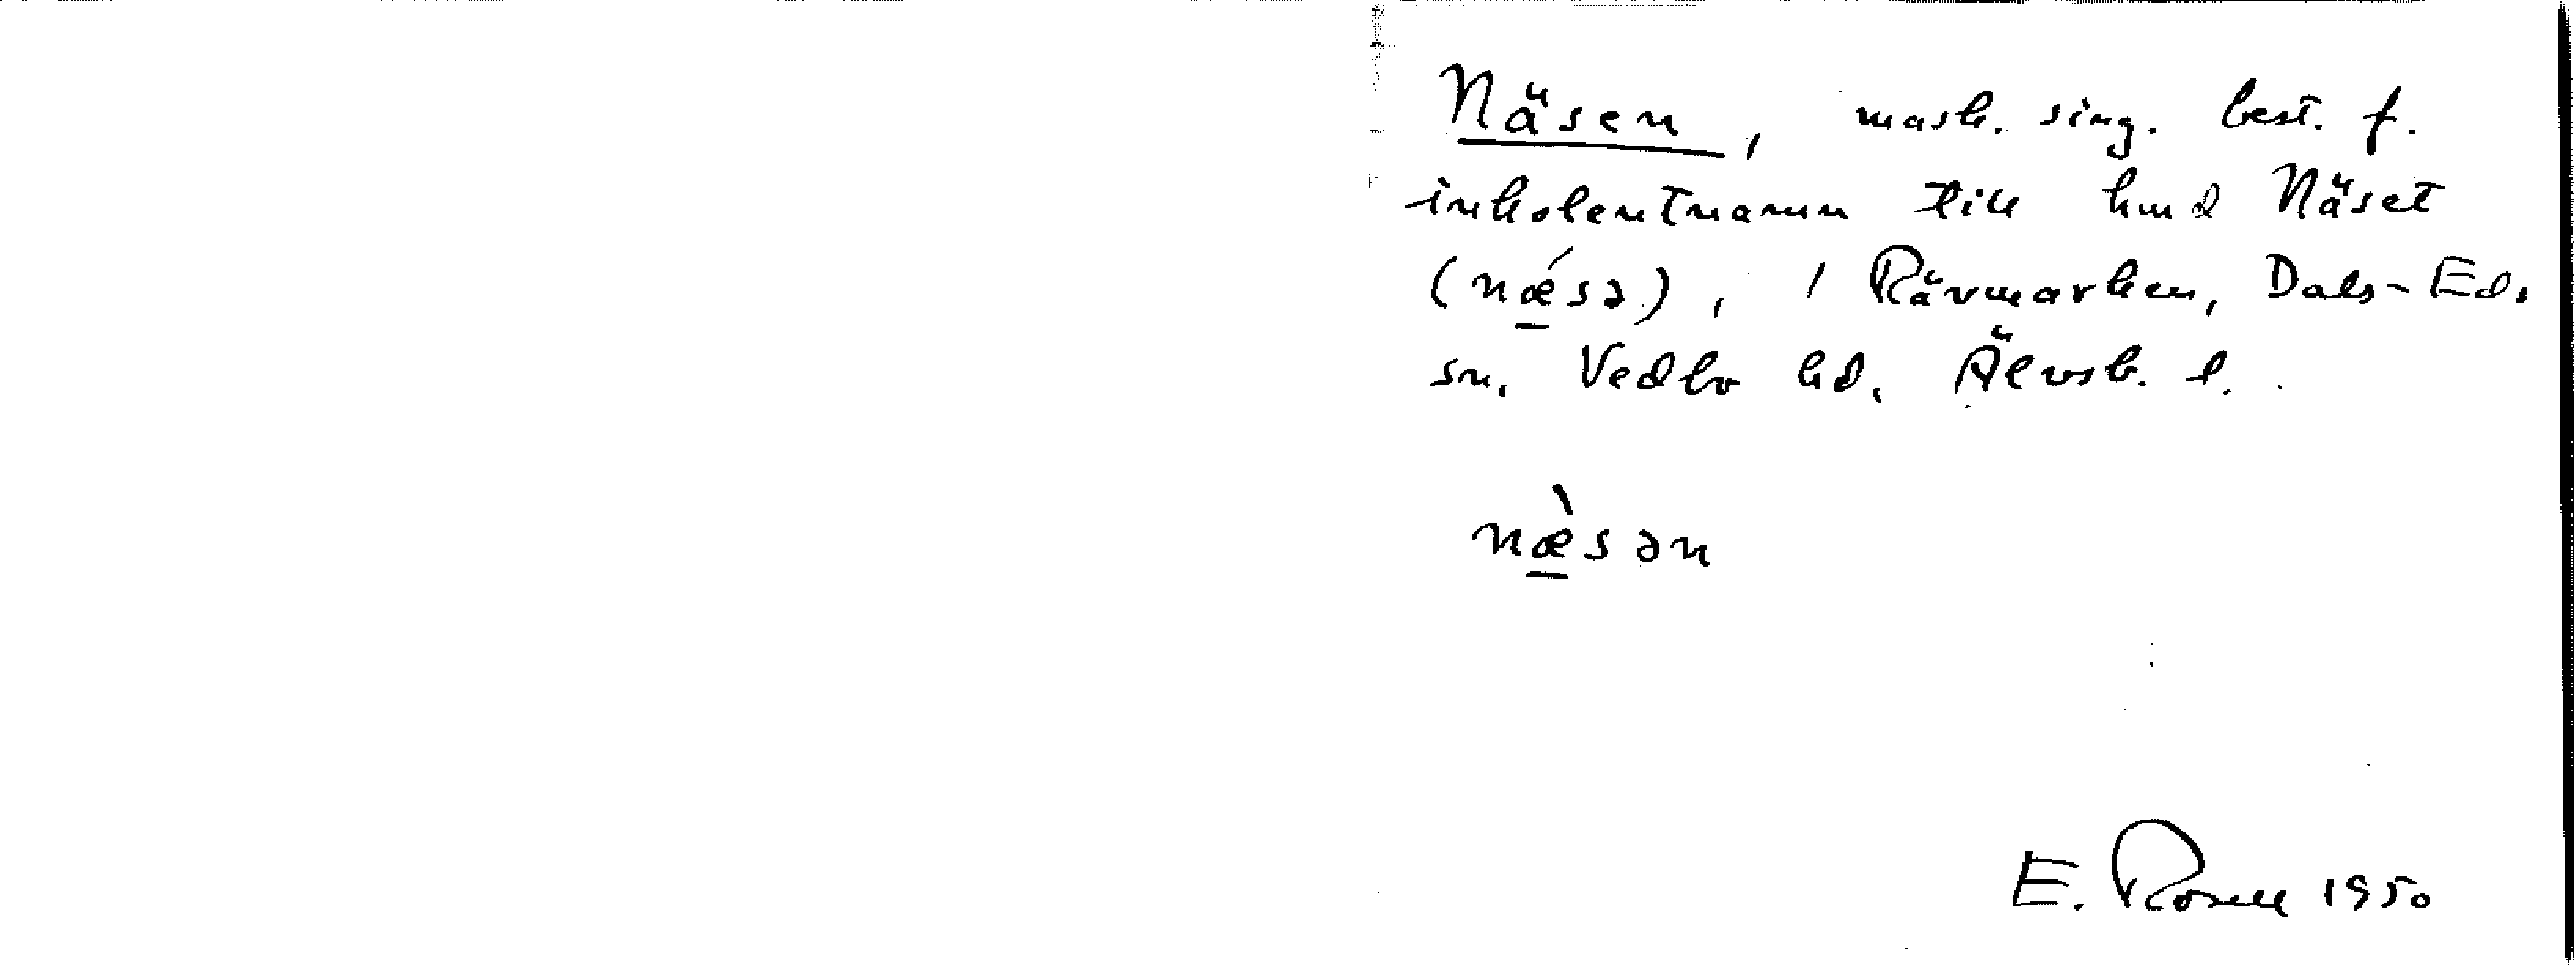 Näsen, mask. sing. best. f.
inkolentnamn till hmd Näset
(nǽ̠sə), i Rävmarken, Dals-Eds
sn. Vedbo hd. Älvsb. l.
næ̠̀sən
E. Rosell 1950